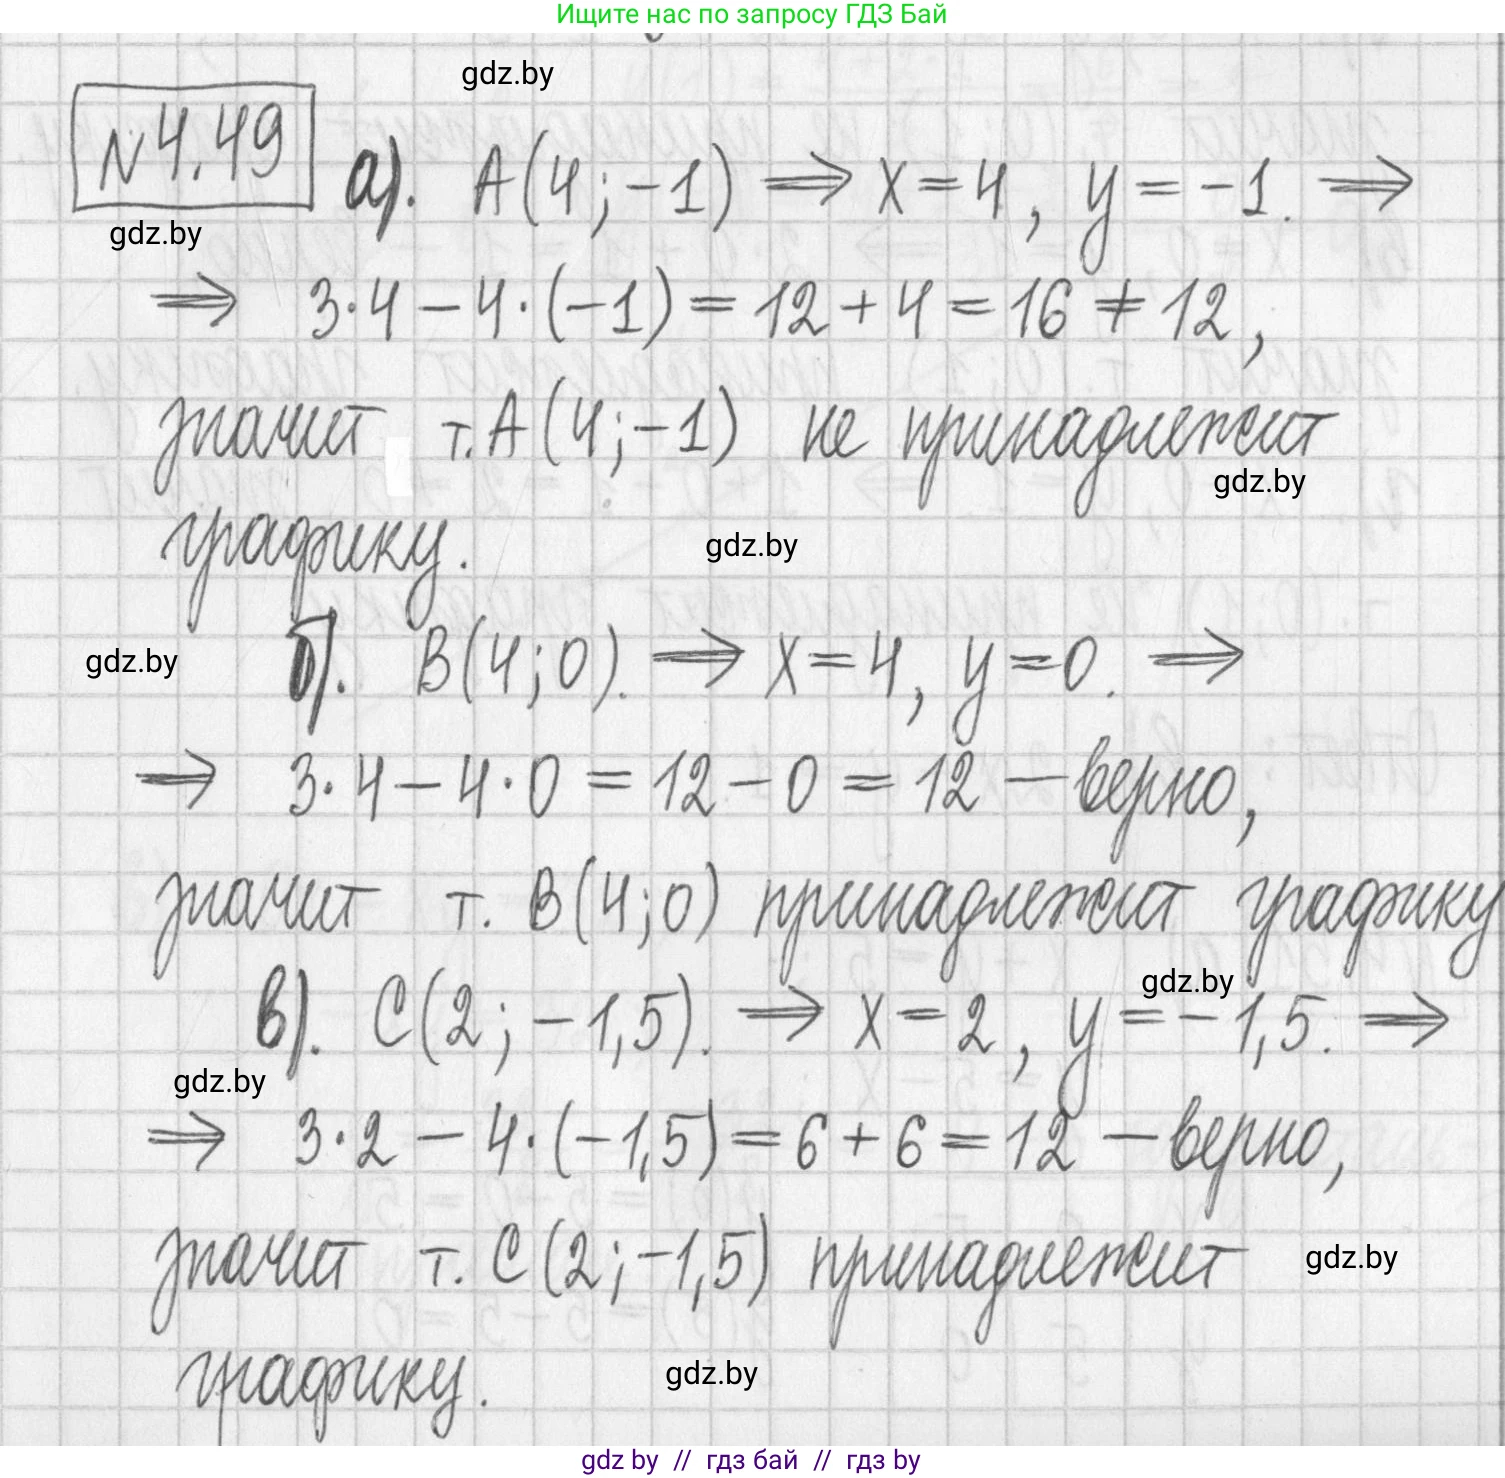 Ищите нас по запросу ГДЗ Бай
gdz.by
№4.49 а). A(4;-1) ⇒ x=4, y=-1. ⇒
gdz.by
⇒ 3·4-4·(-1)=12+4=16≠12,
значит т.A(4;-1) не принадлежит
gdz.by
графику.
gdz.by
б). B(4;0). ⇒ x=4, y=0. ⇒
gdz.by
⇒ 3·4-4·0=12-0=12 - верно,
значит т. B(4;0) принадлежит графику
gdz.by
в). C(2;-1,5). ⇒ x=2, y=-1,5. ⇒
gdz.by
⇒ 3·2-4·(-1,5)=6+6=12 - верно,
значит т. C(2;-1,5) принадлежит
gdz.by
графику.
gdz.by
gdz by // гдз бай // гдз by